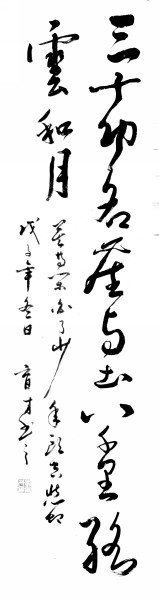 三十功名塵与土八千里路
雲和月
莫等閑白了少年頭空悲切
戊子年冬日
育才書